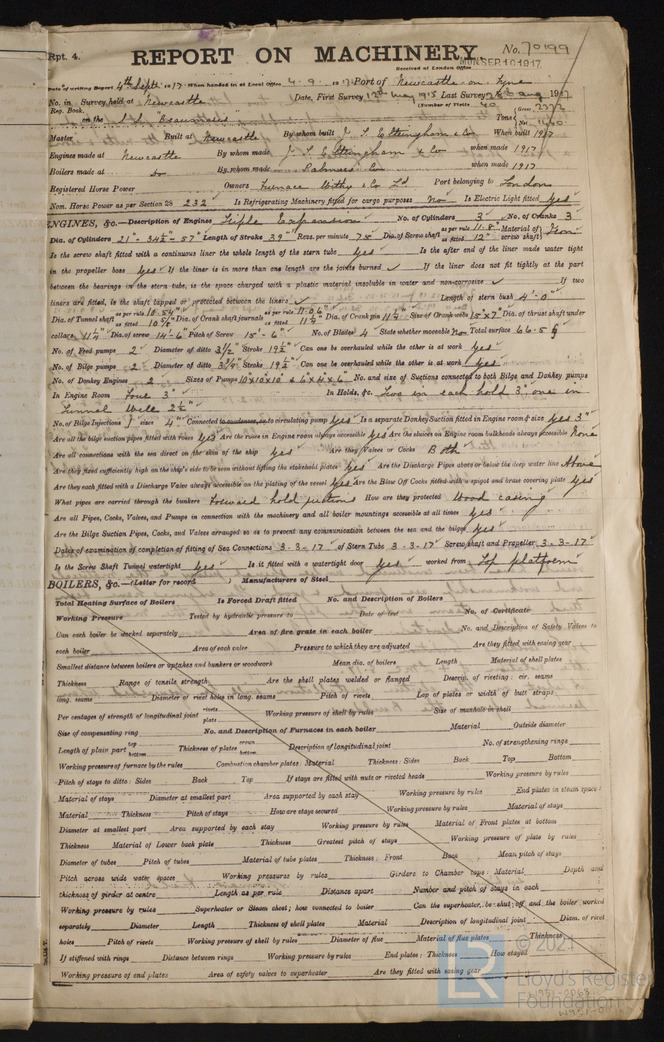 Rpt. 4.
REPORT ON MACHINERY.
No. 70199
Received at London Office MON. SEP. 10 1917
Date of writing Report 4th Sept 1917 When handed in at Local Office 4. 9. 1917 Port of Newcastle on Tyne
No. in Reg. Book. Survey held at Newcastle Date, First Survey 12th May 1915 Last Survey 28th Aug 1917
(Number of Visits 40
on the Tons Gross 2272 Net
Master Built at Newcastle By whom built J. T. Eltringham & Co When built 1917
Engines made at Newcastle By whom made J. T. Eltringham & Co when made 1917
Boilers made at do By whom made Palmers Co when made 1917
Registered Horse Power Owners Furness Withy & Co Ld Port belonging to London
Nom. Horse Power as per Section 28 232 Is Refrigerating Machinery fitted for cargo purposes No Is Electric Light fitted Yes
ENGINES, &c.—Description of Engines Triple Expansion No. of Cylinders 3 No. of Cranks 3
Dia. of Cylinders 21" - 34½ - 57" Length of Stroke 39" Revs. per minute 75 Dia. of Screw shaft as per rule 11.8" as fitted 12" Material of screw shaft Iron
Is the screw shaft fitted with a continuous liner the whole length of the stern tube yes Is the after end of the liner made water tight
in the propeller boss yes If the liner is in more than one length are the joints burned ✓ If the liner does not fit tightly at the part
between the bearings in the stern tube, is the space charged with a plastic material insoluble in water and non-corrosive ✓ If two
liners are fitted, is the shaft lapped or protected between the liners ✓ Length of stern bush 4'-0"
Dia. of Tunnel shaft as per rule 10.54" as fitted 10⅝" Dia. of Crank shaft journals as per rule 11.06" as fitted 11¼" Dia. of Crank pin 11¼" Size of Crank webs 15"x7" Dia. of thrust shaft under
collars 11¼" Dia. of screw 14'-6" Pitch of Screw 15'-6" No. of Blades 4 State whether moveable No Total surface 66.5
No. of Feed pumps 2 Diameter of ditto 3½" Stroke 19½" Can one be overhauled while the other is at work yes
No. of Bilge pumps 2 Diameter of ditto 3¾" Stroke 19½" Can one be overhauled while the other is at work yes
No. of Donkey Engines 2 Sizes of Pumps 10x10x10" & 6x4x6" No. and size of Suctions connected to both Bilge and Donkey pumps
In Engine Room Four 3" In Holds, &c. Two in each hold 3", one in
Tunnel Well 2½"
No. of Bilge Injections 1 sizes 4" Connected to condenser, or to circulating pump yes Is a separate Donkey Suction fitted in Engine room & size yes 3"
Are all the bilge suction pipes fitted with roses yes Are the roses in Engine room always accessible yes Are the sluices on Engine room bulkheads always accessible None
Are all connections with the sea direct on the skin of the ship yes Are they Valves or Cocks Both
Are they fixed sufficiently high on the ship's side to be seen without lifting the stokehold plates yes Are the Discharge Pipes above or below the deep water line Above
Are they each fitted with a Discharge Valve always accessible on the plating of the vessel yes Are the Blow Off Cocks fitted with a spigot and brass covering plate yes
What pipes are carried through the bunkers Forward hold suctions How are they protected Wood casing
Are all Pipes, Cocks, Valves, and Pumps in connection with the machinery and all boiler mountings accessible at all times yes
Are the Bilge Suction Pipes, Cocks, and Valves arranged so as to prevent any communication between the sea and the bilges yes
Dates of examination of completion of fitting of Sea Connections 3-3-17 of Stern Tube 3-3-17 Screw shaft and Propeller 3-3-17
Is the Screw Shaft Tunnel watertight yes Is it fitted with a watertight door yes worked from Top platform
BOILERS, &c.—(Letter for record ) Manufacturers of Steel
Total Heating Surface of Boilers Is Forced Draft fitted No. and Description of Boilers
Working Pressure Tested by hydraulic pressure to Date of test No. of Certificate
Can each boiler be worked separately Area of fire grate in each boiler No. and Description of Safety Valves to
each boiler Area of each valve Pressure to which they are adjusted Are they fitted with easing gear
Smallest distance between boilers or uptakes and bunkers or woodwork Mean dia. of boilers Length Material of shell plates
Thickness Range of tensile strength Are the shell plates welded or flanged Descrip. of riveting: cir. seams
long. seams Diameter of rivet holes in long. seams Pitch of rivets Lap of plates or width of butt straps
Per centages of strength of longitudinal joint rivets plate Working pressure of shell by rules Size of manhole in shell
Size of compensating ring No. and Description of Furnaces in each boiler Material Outside diameter
Length of plain part top bottom Thickness of plates crown bottom Description of longitudinal joint No. of strengthening rings
Working pressure of furnace by the rules Combustion chamber plates: Material Thickness: Sides Back Top Bottom
Pitch of stays to ditto: Sides Back Top If stays are fitted with nuts or riveted heads Working pressure by rules
Material of stays Diameter at smallest part Area supported by each stay Working pressure by rules End plates in steam space:
Material Thickness Pitch of stays How are stays secured Working pressure by rules Material of stays
Diameter at smallest part Area supported by each stay Working pressure by rules Material of Front plates at bottom
Thickness Material of Lower back plate Thickness Greatest pitch of stays Working pressure of plate by rules
Diameter of tubes Pitch of tubes Material of tube plates Thickness: Front Back Mean pitch of stays
Pitch across wide water spaces Working pressures by rules Girders to Chamber tops: Material Depth and
thickness of girder at centre Length as per rule Distance apart Number and pitch of stays in each
Working pressure by rules Superheater or Steam chest; how connected to boiler Can the superheater be shut off and the boiler worked
separately Diameter Length Thickness of shell plates Material Description of longitudinal joint Diam. of rivet
holes Pitch of rivets Working pressure of shell by rules Diameter of flue Material of flue plates Thickness
If stiffened with rings Distance between rings Working pressure by rules End plates: Thickness How stayed
Working pressure of end plates Area of safety valves to superheater Are they fitted with easing gear
© 2021
Lloyd's Register
Foundation